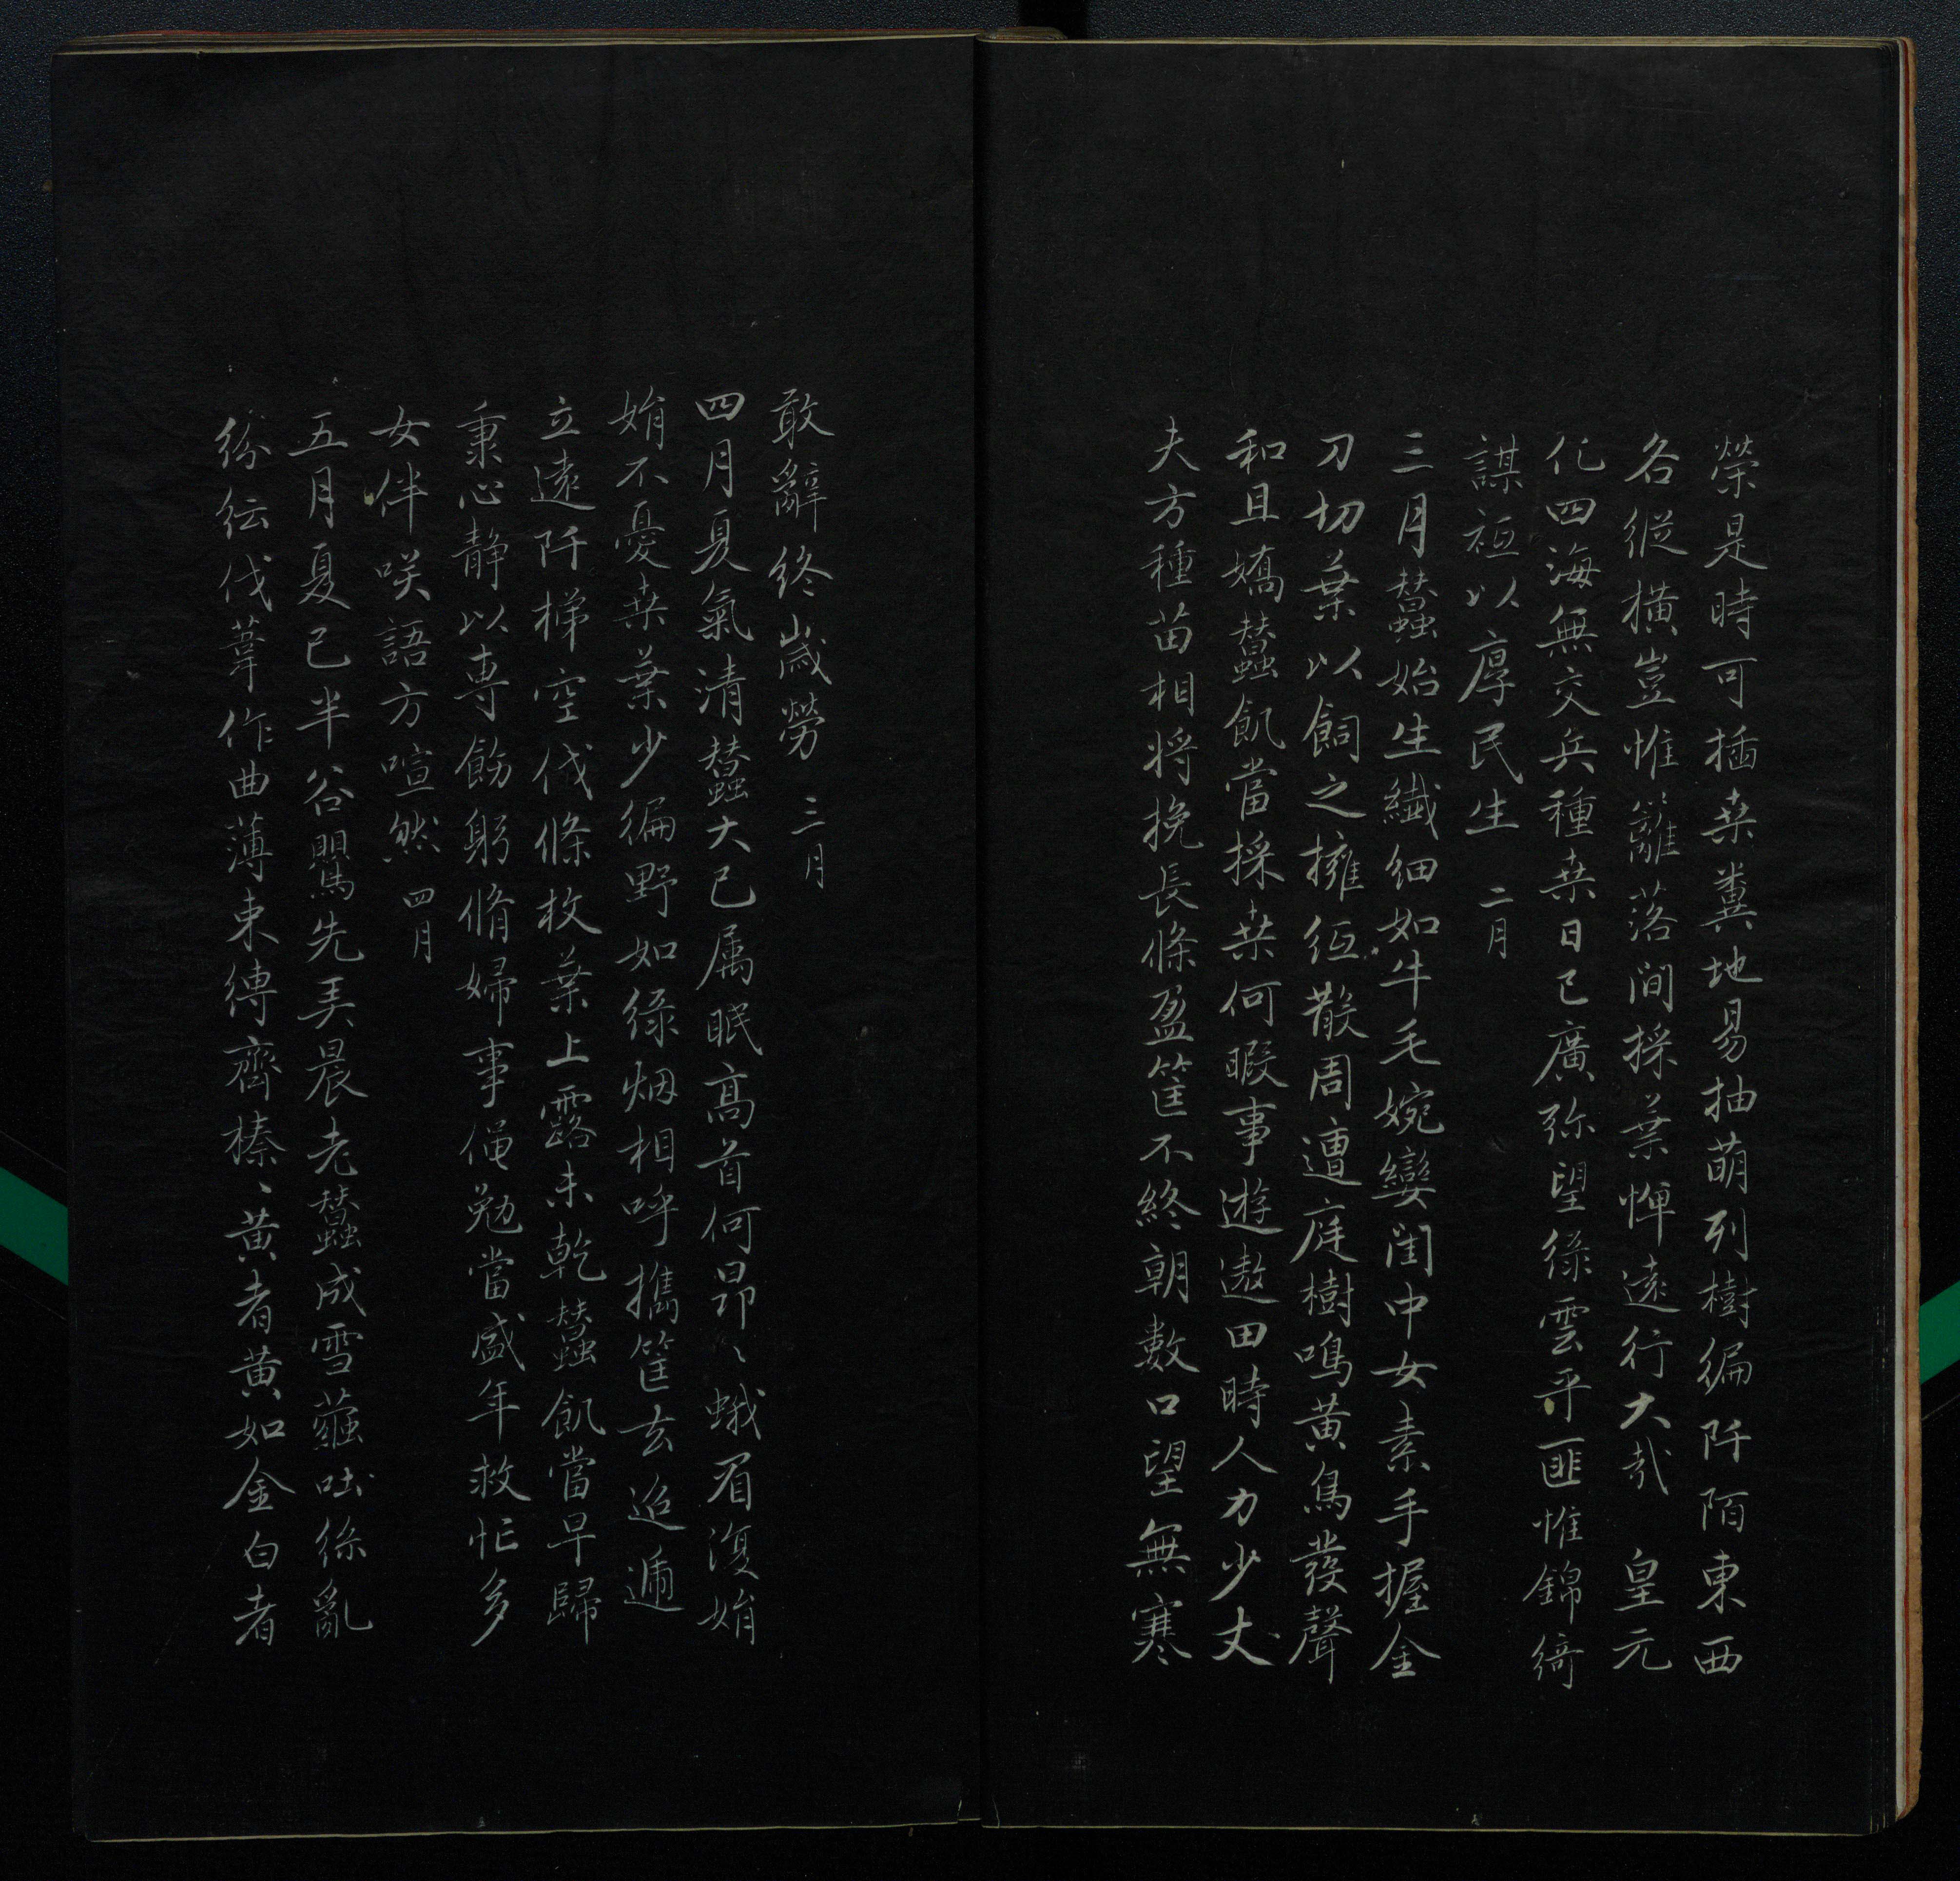 榮是時可插桑糞地易抽萌列樹徧阡陌東西
各縱橫豈惟籬落間採葉憚遠行大哉 皇元
化四海無交兵種桒日已廣弥望綠雲平匪惟錦綺
謀祗以厚民生 二月
三月蠶始生纖細如牛毛婉孌閨中女素手握金
刀切葉以飼之擁紙散周遭庭樹鳴黃鳥發聲
和且嬌蠶飢當採桒何暇事遊遨田時人力少丈
夫方種苗相將挽長條盈筐不終朝數口望無寒
敢辭終歲勞 三月
四月夏氣清蠶大已属眠高首何昂〻蛾眉復娟
娟不憂桒葉少徧野如綠烟相呼攜筐去迢遞
立遠阡梯空伐條枚葉上露未乾蠶飢當早歸
秉心靜以專飭躬脩婦事僶勉當盛年救忙多
女伴咲語方喧然 四月
五月夏已半谷鸎先弄晨老蠶成雪蠒吐絲亂
紛紜伐葦作曲薄束縛齊榛〻黃者黃如金白者